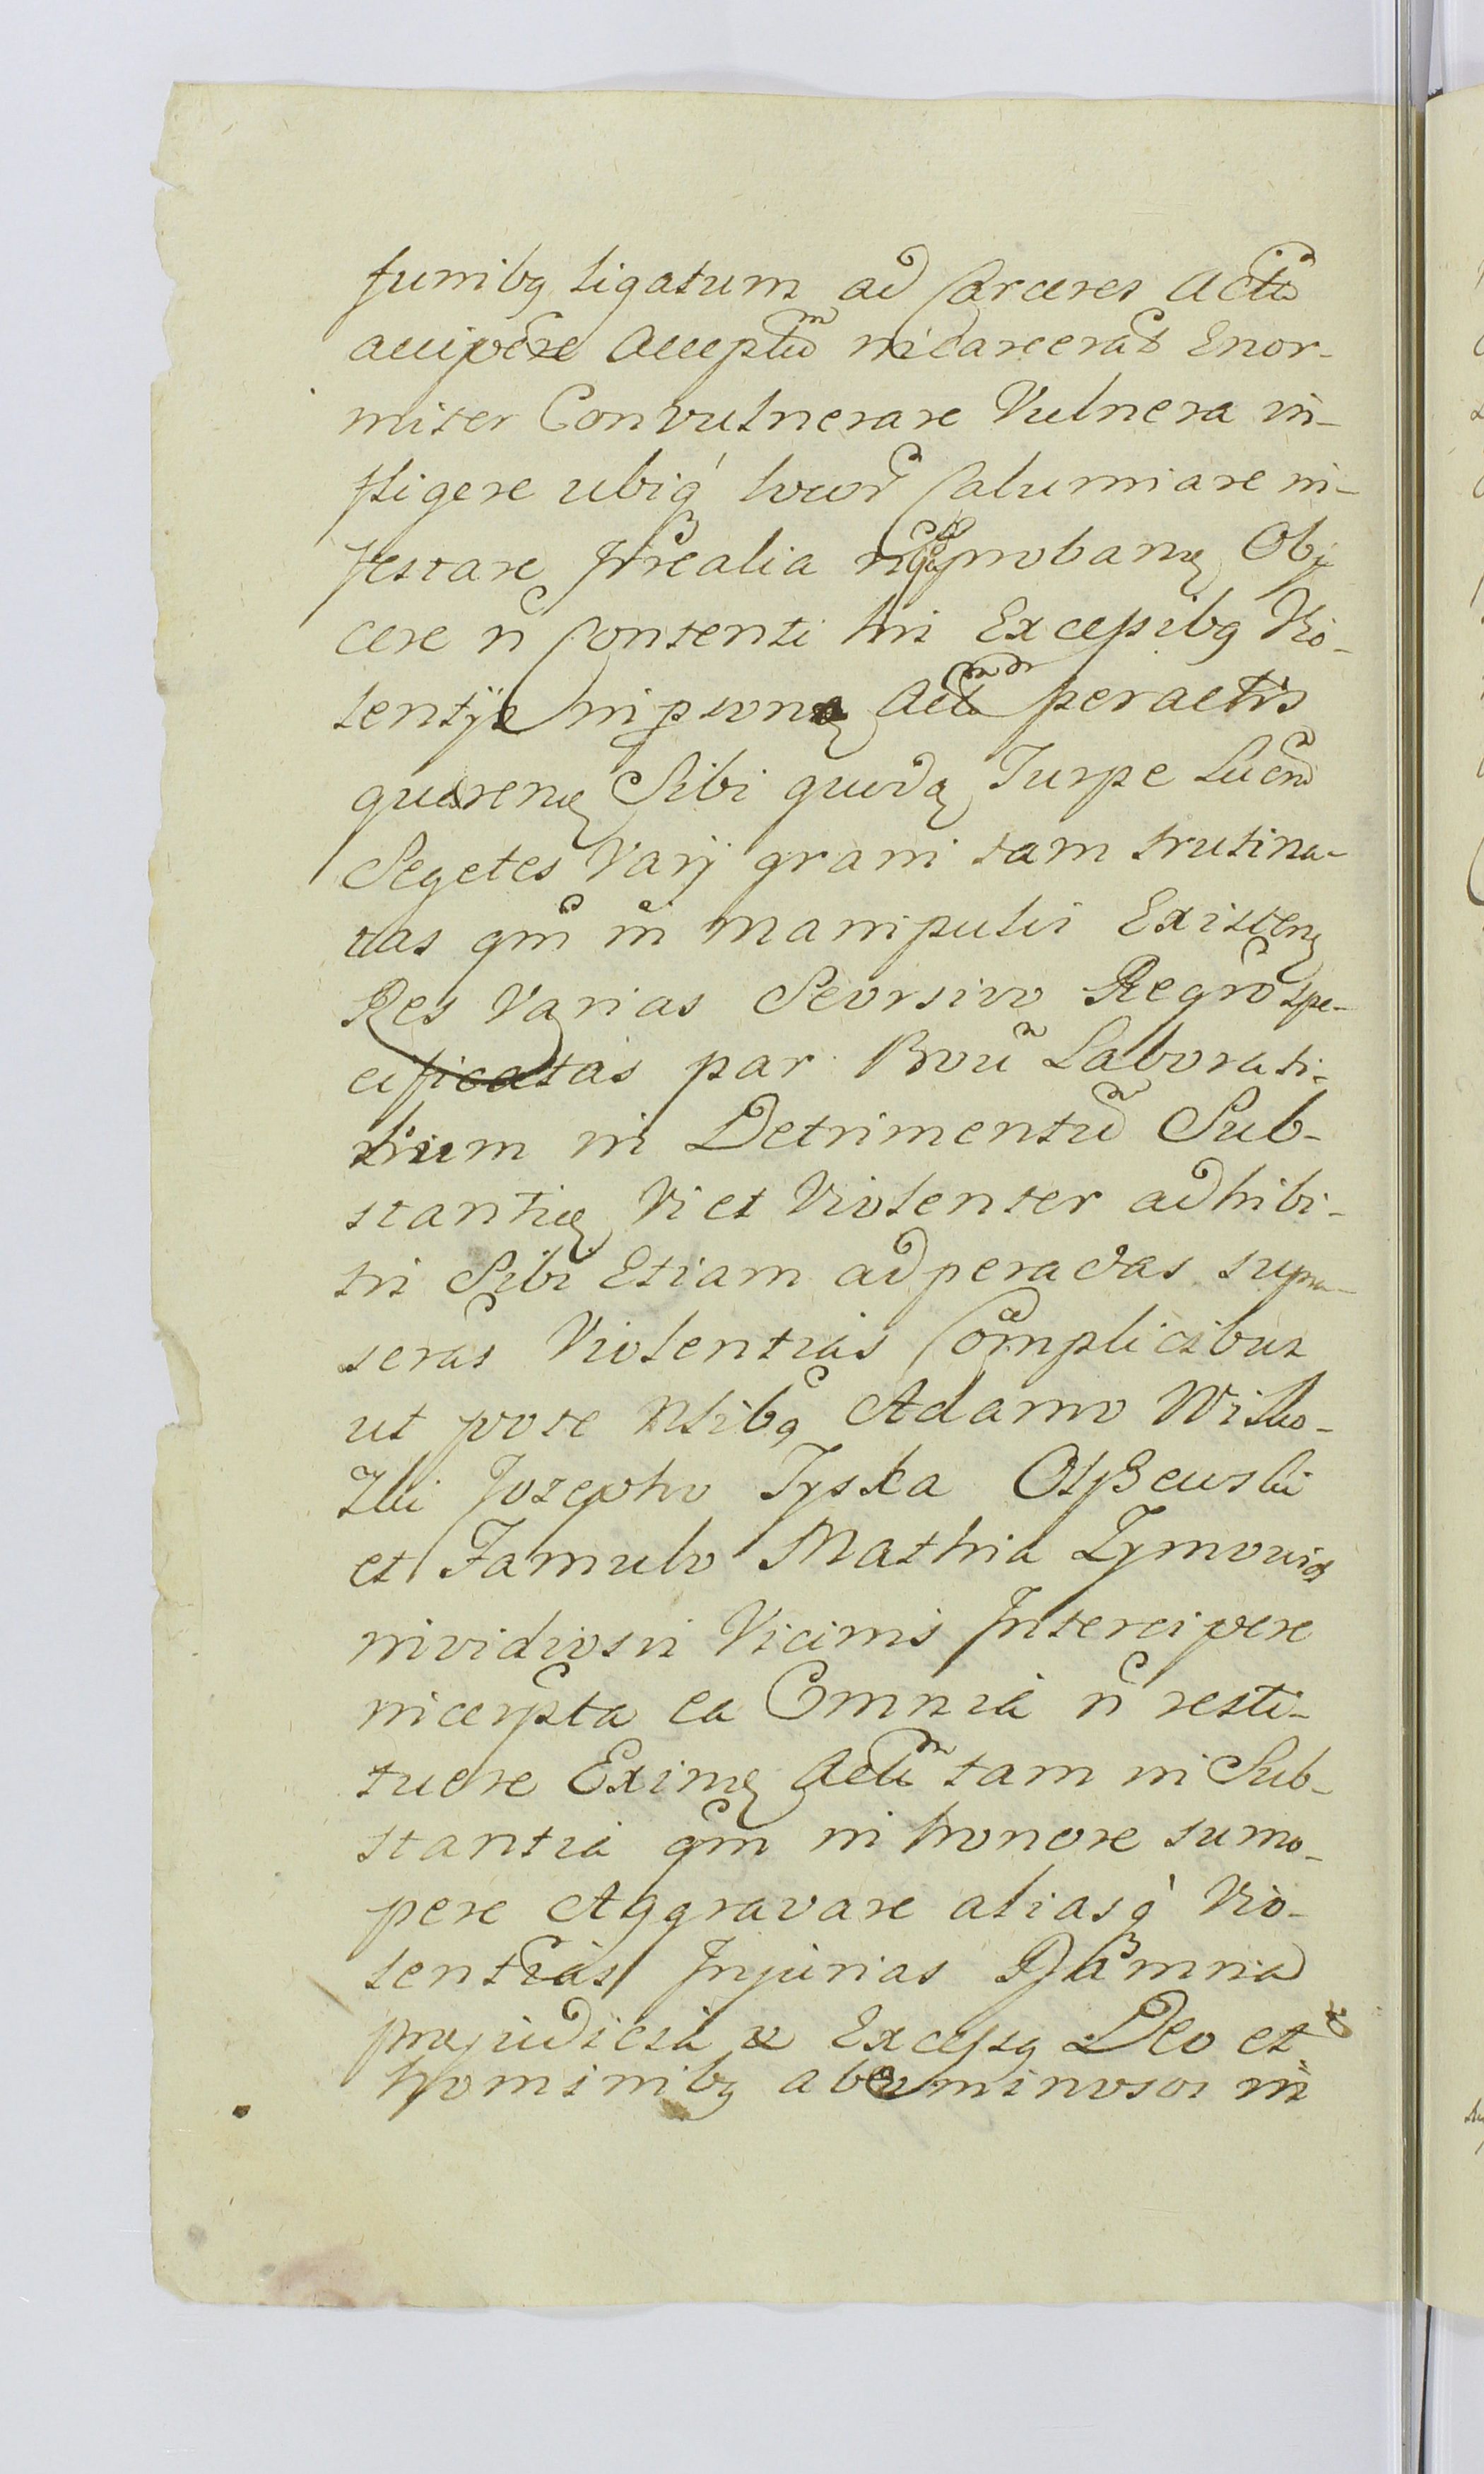 funibq ligatum ad Carceres Actu
accipere Acceptum incarcerat Enor-
miter Convulnerare Vulnera in-
fligere ubiq locor Calumniare in-
festare probanę Obji
cere n Contenti his Excessibq Vio-
lentys in psonę Act peractis
quærenę Sibi quodą Turpe Lucru
Segetes Varij grani tam trutina-
tas qm in Manipulis Existenę
Res Varias Seorsivo Regro Spe-
cificatas par Bou Laborati-
tium in Detrimentu Sub-
stantię Vi et Violenter adhibi-
tis Sibi Etiam ad peractas supra-
Violentias Complicibus
ut pote Nlibq Adamo Witko-
zki Jozepho Tyska Olyßewski
et Famulo Mathia Tymowicz
invidiosis Vicinis Intercipere
incerpta ea Omnia n resti-
tuere Eximę Act tam in Sub-
stantia qm in honore sumo-
pere Aggravare aliasq Vio-
lentias Injurias Damna
præjudicia & Excessq Deo et
hominibq abominosos in